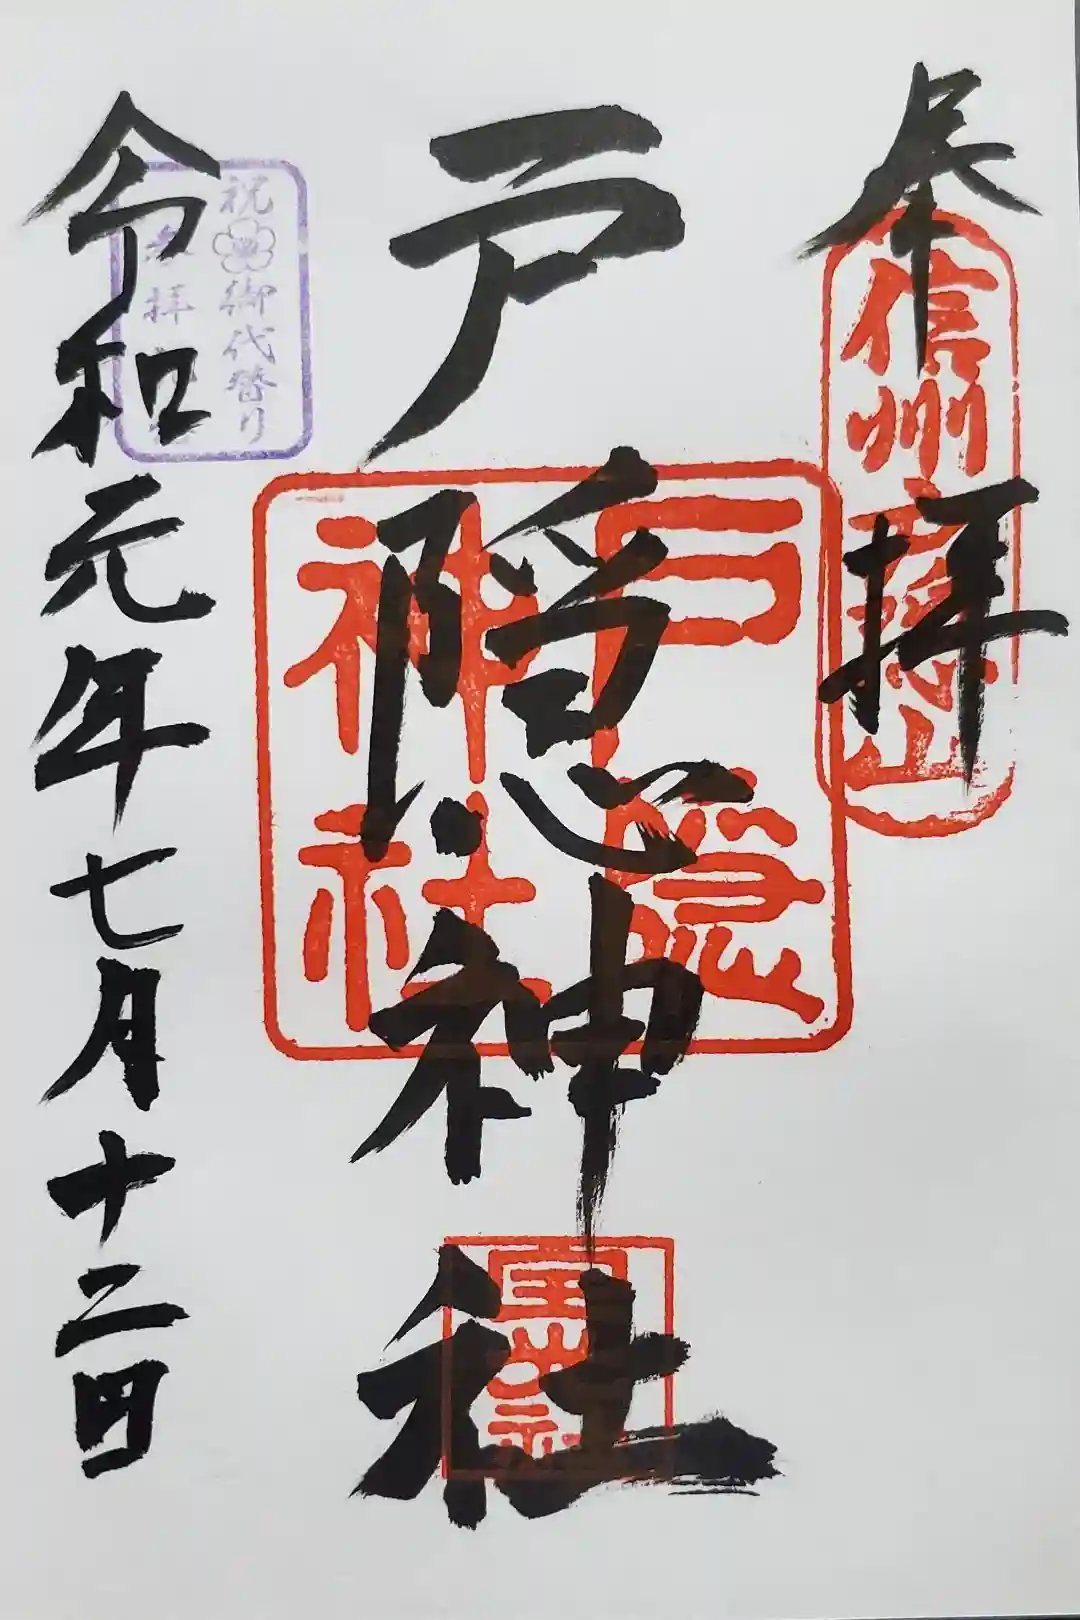 奉拝
信州戸隠山
戸隠神社
戸隠
神社
祝御代替り
拝
令和元年七月十二日